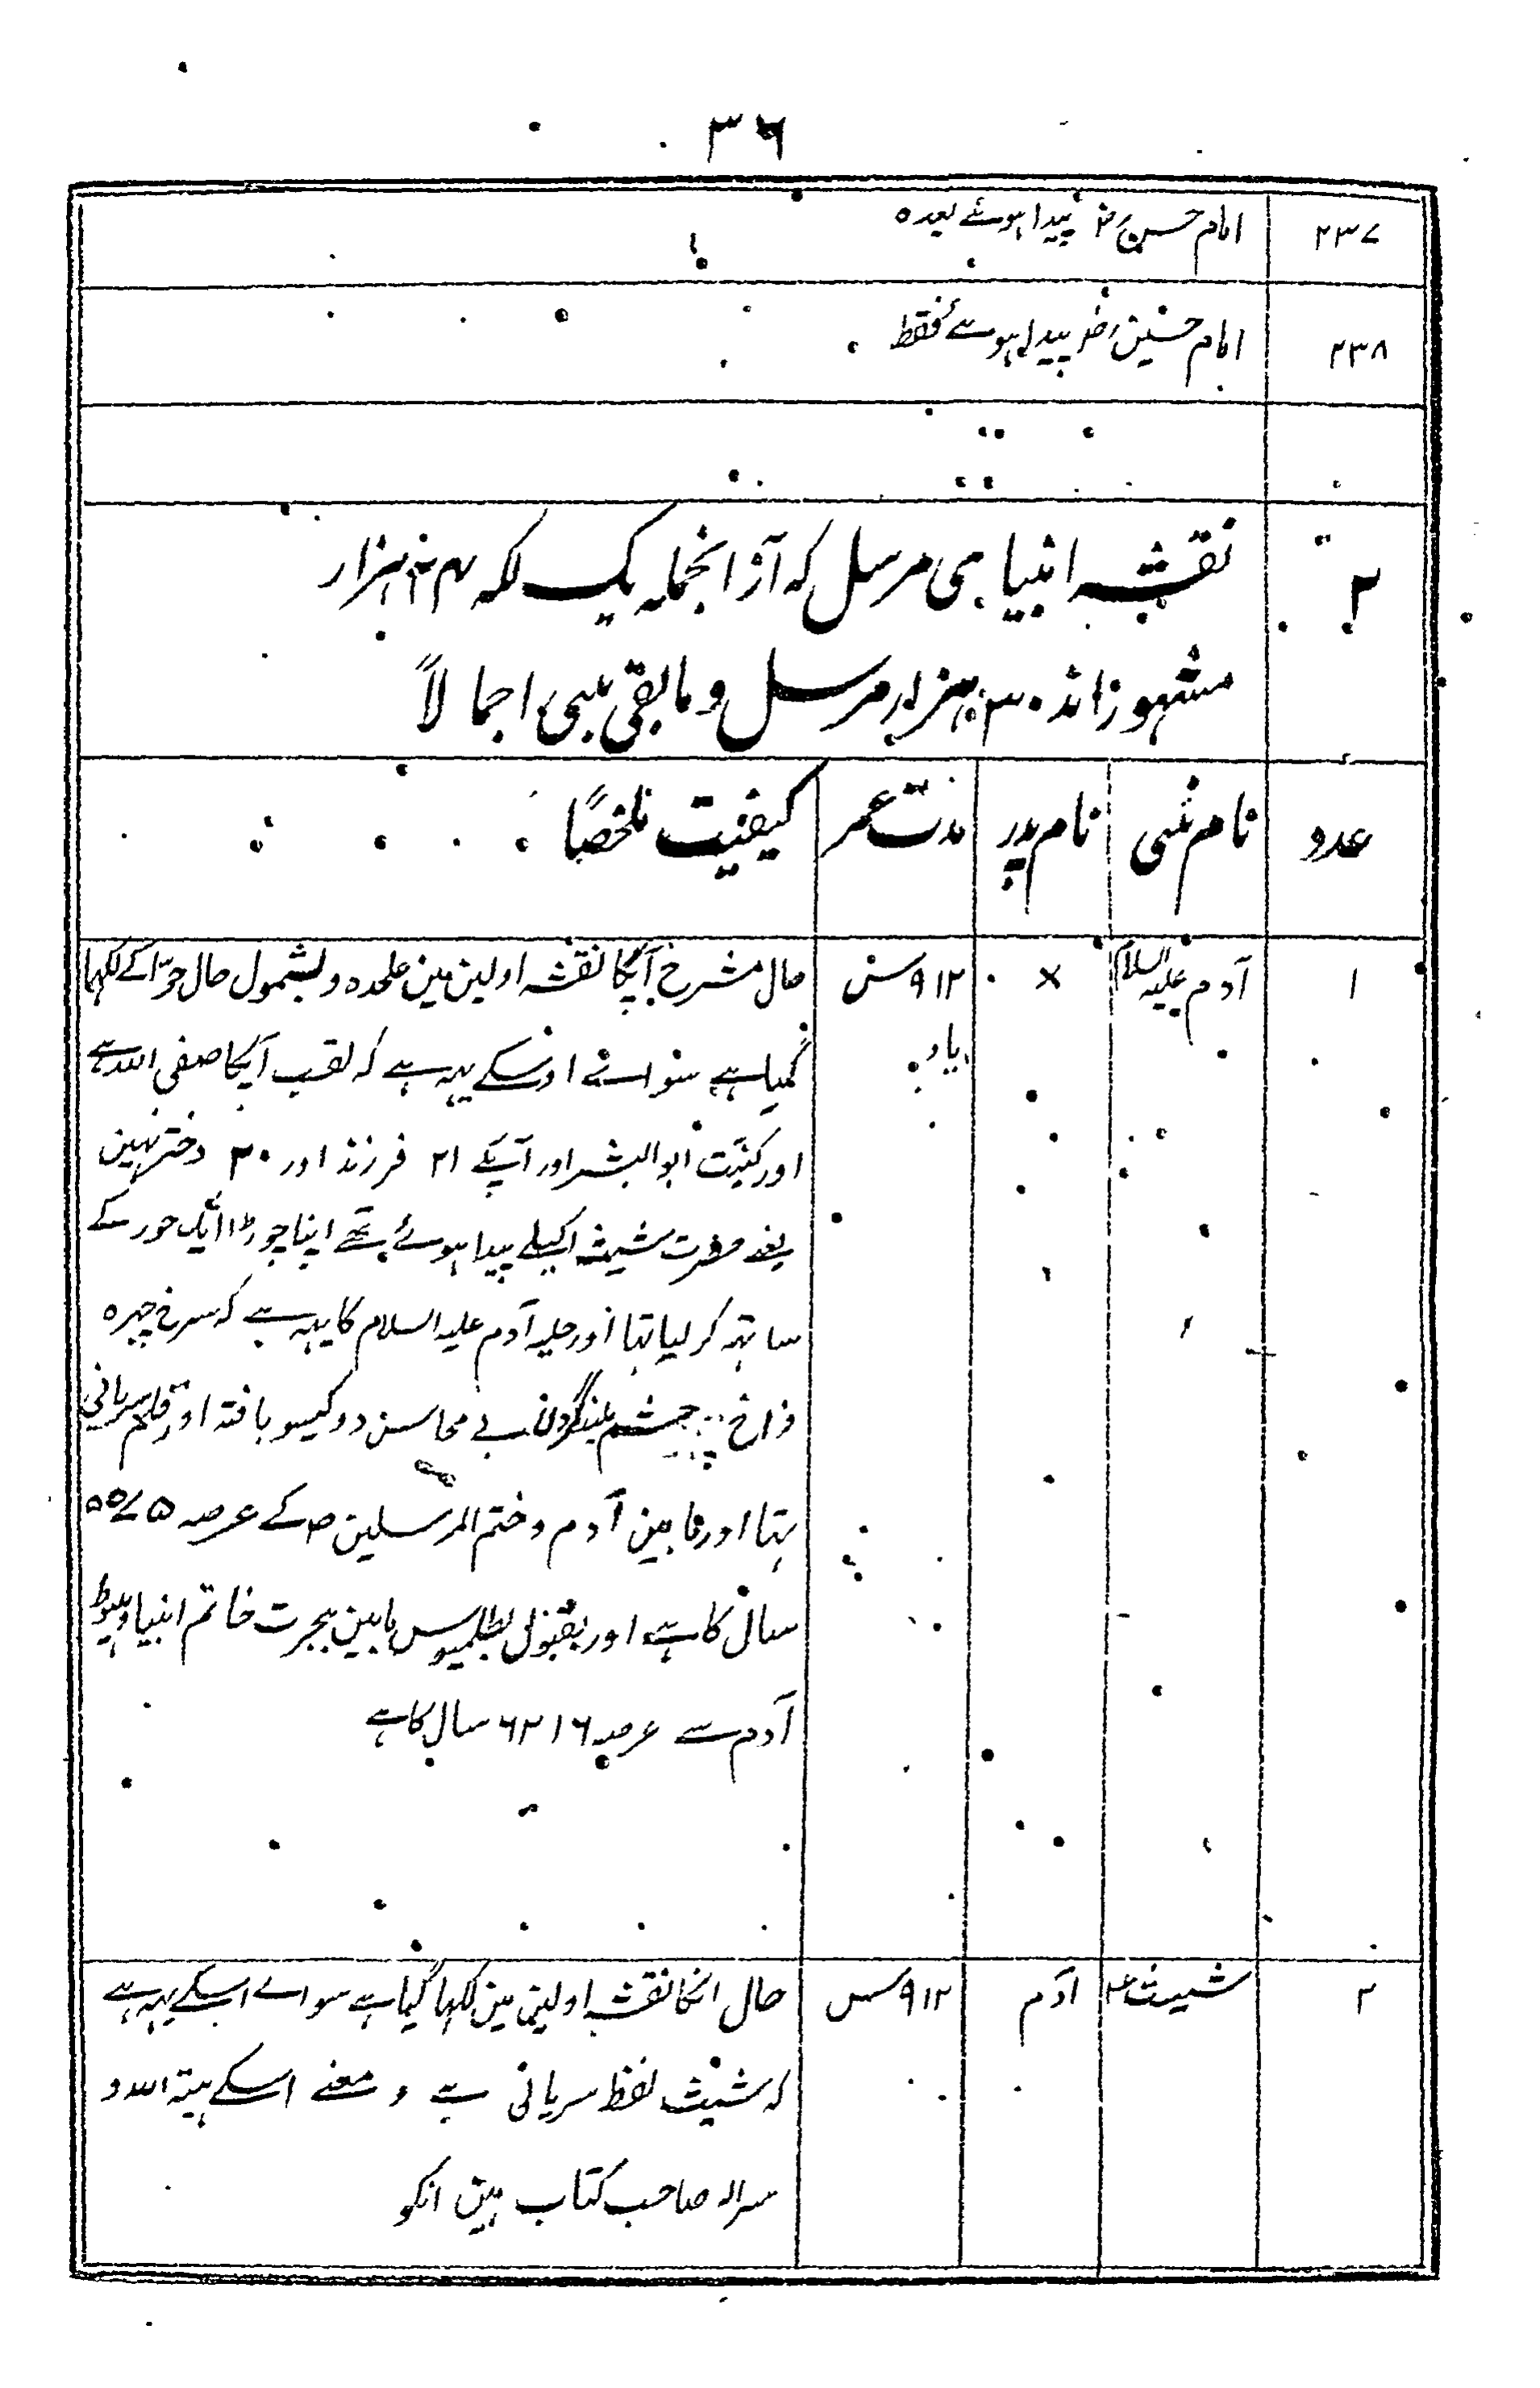 ۳۶
۲۳۷ امام حسن رض پیدا ہوئے بعدہ
۲۳۸ امام حسین رض پیدا ہوئے فقط
۲ نقشہ انبیای مرسل کہ ازانجملہ یک لکہ ۲۴ ہزار
مشہور اند ۳۰ ہزار مرسل و مابقی نبی اجمالاً
عدد نام نبی نام پدر مدت عمر کیفیت ملخصاً
۱ آدم علیہ السلام × ۹۱۲ سن حال مشرح آپکا نقشہ اولین مین علحدہ و بشمول حال حوّا کے لکہا
گیا ہے سوائے اوسکے یہہ ہے کہ لقب آپکا صفی اللہ ہے
اور کنیّت ابوالبشر اور آپکے ۲۱ فرزند اور ۲۰ دختر تہین
حضرت شیث اکیلے پیدا ہوئے تھے اپنا جوڑا ایک حور کے
ساتہہ کر لیا تہا اور حلیہ آدم علیہ السلام کا یہہ ہے کہ سرخ چہرہ
فراخ چشم بلند گردن بے محاسن دو گیسو بافتہ اور قلم سریانی
تہا اور مابین آدم و ختم المرسلین ص کے عرصہ ۵۷۵۵
سال کا ہے اور بقول بطلمیوس مابین ہجرت خاتم انبیا و ہبوط
آدم سے عرصہ ۶۲۱۶ سال کا ہے
۲ شیث ع آدم ۹۱۲ سال انکا نقشہ اولین مین لکہا گیا ہے سوائے اسکے یہہ ہے
کہ شیث لفظ سریانی ہے و معنے اسکے ہبۃ اللہ و
صاحب کتاب ہین انکو